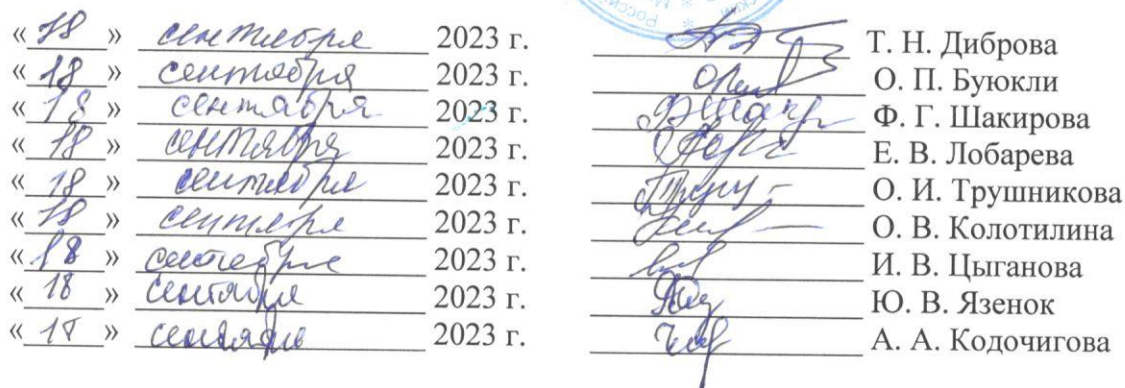 Росси
« 18 » сентября 2023 г. Т. Н. Диброва
« 18 » сентября 2023 г. О. П. Буюкли
« 18 » сентября 2023 г. Ф. Г. Шакирова
« 18 » сентября 2023 г. Е. В. Лобарева
« 18 » сентября 2023 г. О. И. Трушникова
« 18 » сентября 2023 г. О. В. Колотилина
« 18 » сентября 2023 г. И. В. Цыганова
« 18 » сентября 2023 г. Ю. В. Язенок
« 18 » сентября 2023 г. А. А. Кодочигова